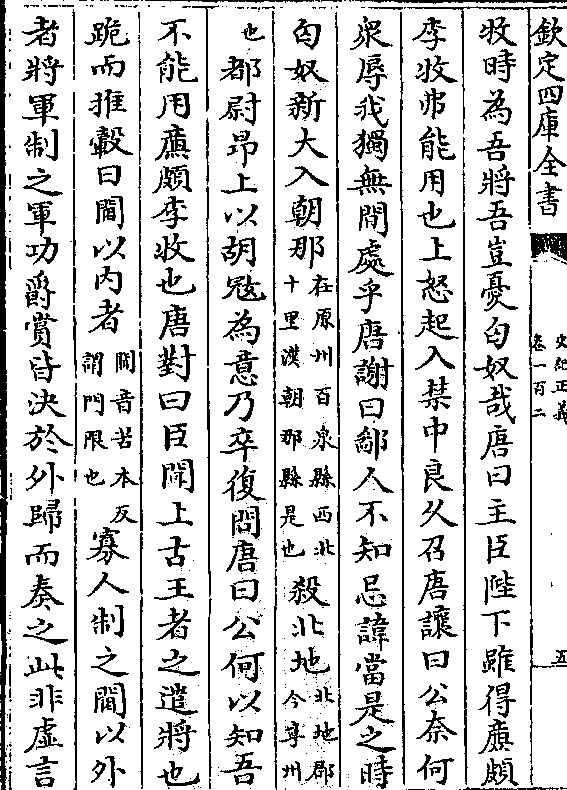 欽定四庫全書
史記正義
卷一百二
五
牧時為吾將吾豈憂匈奴哉唐曰主臣陛下雖得廉頗
李牧弗能用也上怒起入禁中良久召唐讓曰公奈何
衆辱我獨無閒處乎唐謝曰鄙人不知忌諱當是之時
匈奴新大入朝那在原州百泉縣西北十里漢朝那縣是也殺北地北地郡今寧州
也都尉昂上以胡冦為意乃卒復問唐曰公何以知吾
不能用廉頗李牧也唐對曰臣聞上古王者之遣將也
跪而推轂曰閫以內者閫音苦本反謂門限也寡人制之閫以外
者將軍制之軍功爵賞皆決於外歸而奏之此非虛言